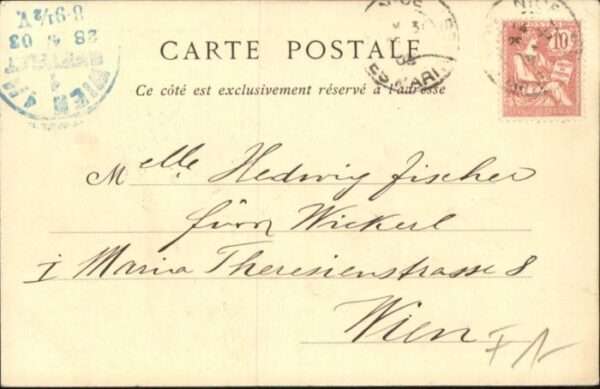 CARTE POSTALE
Ce côté est exclusivement réservé à l'adresse
NICE
NICE
10
WIEN
BESTELLT
28 4 03
8-9½V.
Melle Hedwig Fischer
Wickerl
I Maria Theresienstrasse 8
Wien